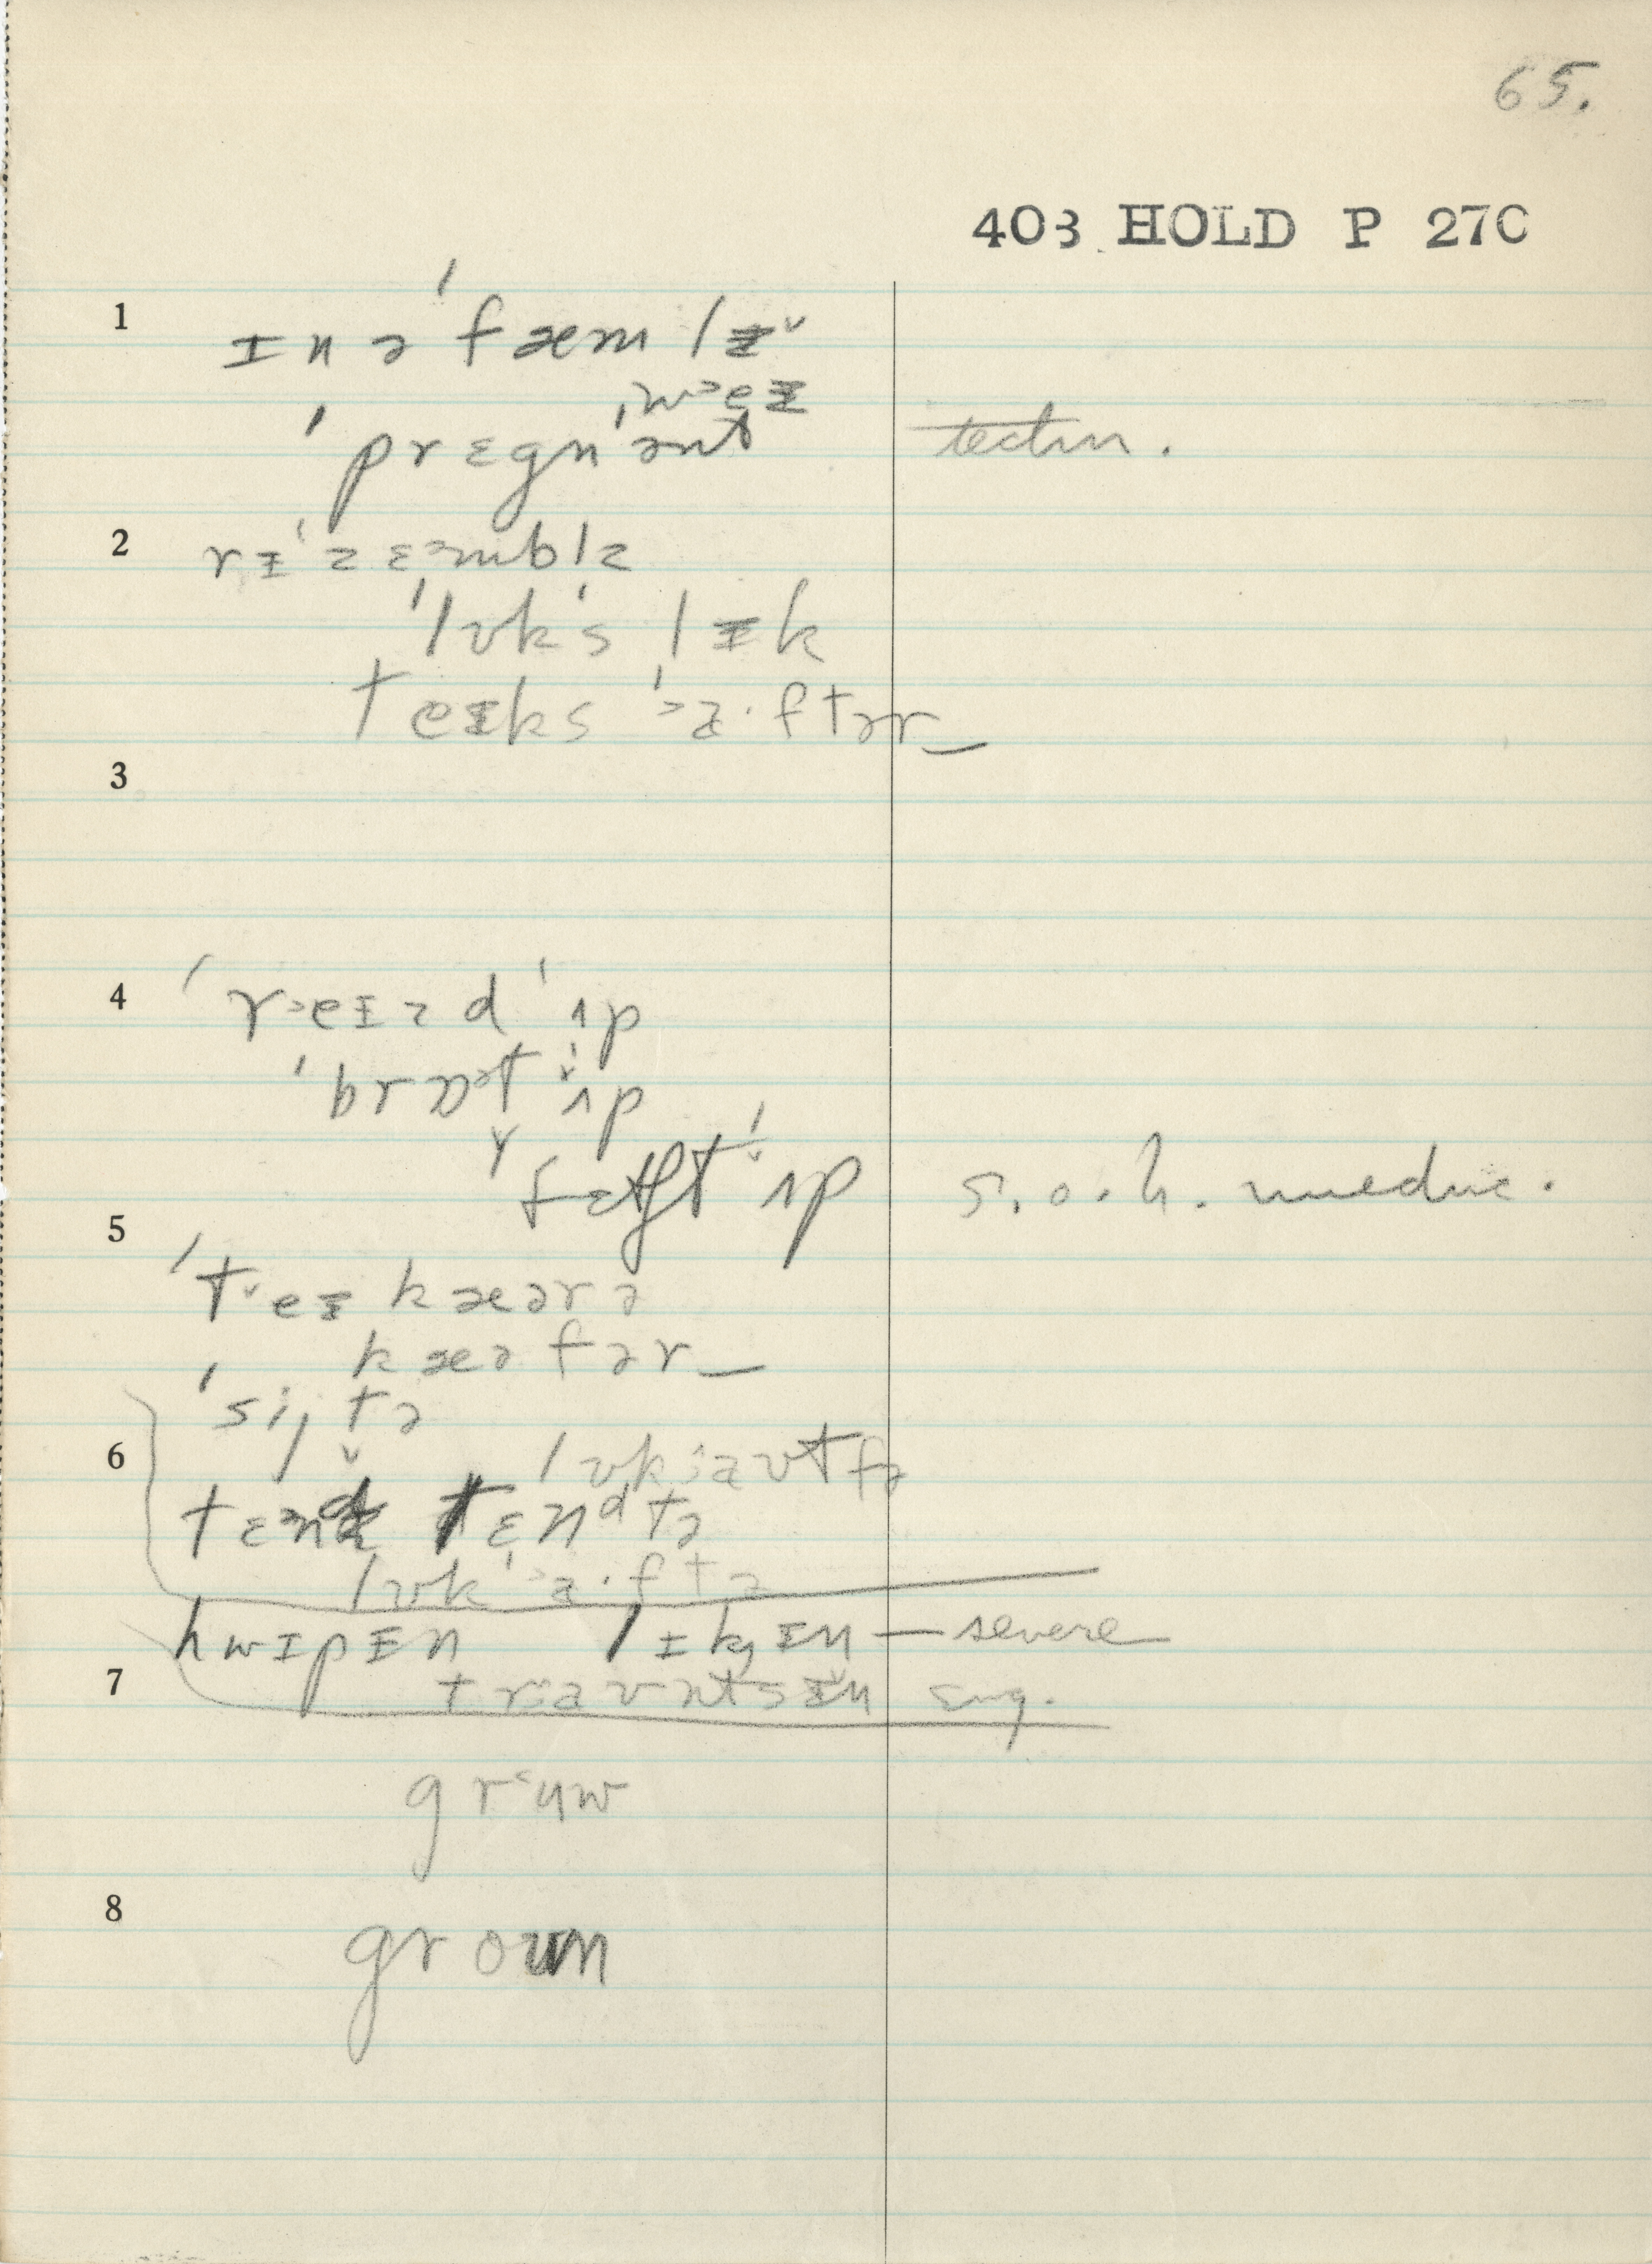 65.
403 HOLD P 270
1
ɪn ə ˈfæmlɪ˅
ˌw˃eɪ
ˈprɛgnənt techn.
2
rɪˈzɛᵊmblz
ˈlʊkˈs lɪk
teɪks ˈ˃a·ftər_
3
4
ˈr˃eɪzd ˈʌp
ˈbrɒᵊt ˈʌp
fɛtʃt ˈʌp s.o.h.
5
ˈt˅eɪ kæərə
kæəfər_
ˈsijtə
6
lʊkˈaʊtfə
tɛᵊnd tɛnᵈtə
lʊkˈ˃a·ftə
hwɪpɪn lɪkɪn — severe
7
traʊntsɪn
gr˂uw
8
groʊn